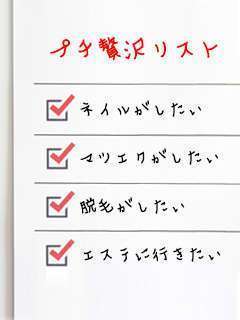 プチ贅沢リスト
ネイルがしたい
マツエクがしたい
脱毛がしたい
エステに行きたい